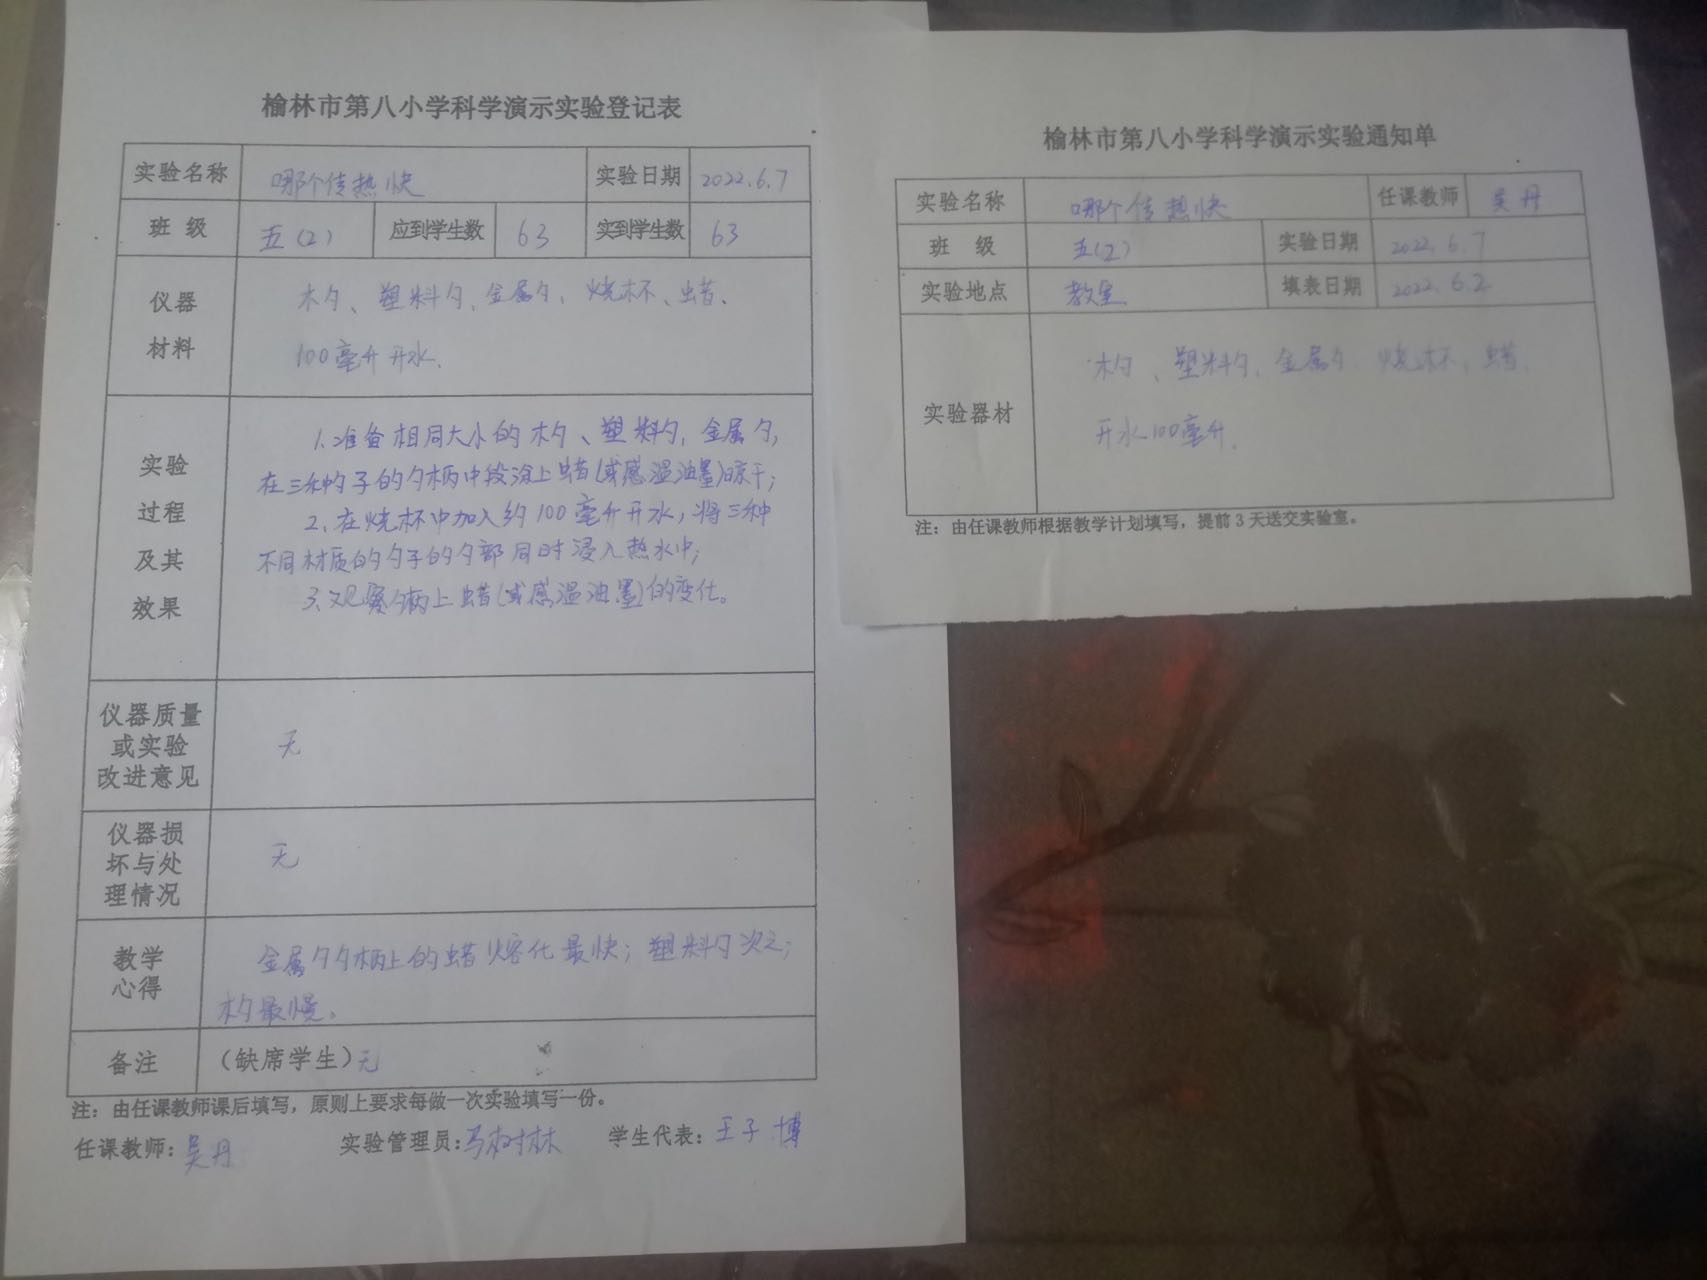 榆林市第八小学科学演示实验登记表
实验名称 哪个传热快 实验日期 2022.6.7
班 级 五(2) 应到学生数 63 实到学生数 63
仪器
材料
木勺、塑料勺、金属勺、烧杯、蜡、
100毫升开水.
实验
过程
及其
效果
1.准备相同大小的木勺、塑料勺,金属勺,
在三种勺子的勺柄中段涂上蜡(或感温油墨)晾干;
2、在烧杯中加入约100毫升开水,将三种
不同材质的勺子的勺部同时浸入热水中;
3、观察勺柄上蜡(或感温油墨)的变化。
仪器质量
或实验
改进意见
无
仪器损
坏与处
理情况
无
教学
心得
金属勺勺柄上的蜡熔化最快;塑料勺次之;
木勺最慢.
备注 (缺席学生)无
注:由任课教师课后填写,原则上要求每做一次实验填写一份。
任课教师:吴丹 实验管理员:马树林 学生代表:王子博
榆林市第八小学科学演示实验通知单
实验名称 哪个传热快 任课教师 吴丹
班 级 五(2) 实验日期 2022.6.7
实验地点 教室 填表日期 2022.6.2
实验器材
木勺、塑料勺、金属勺、烧杯、蜡、
开水100毫升.
注:由任课教师根据教学计划填写,提前3天送交实验室。